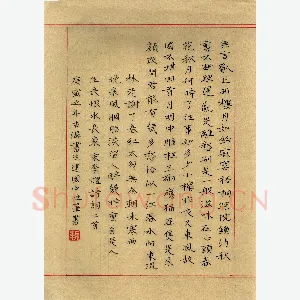 無言獨上西樓月如鉤寂寞梧桐深院鎖清秋
剪不斷理還亂是離愁別是一般滋味在心頭春
花秋月何時了往事知多少小樓昨夜又東風故
國不堪回首月明中雕欄玉砌應猶在只是朱
顏改問君能有幾多愁恰似一江春水向東流
林花謝了春紅太匆匆無奈朝來寒雨
晚來風胭脂淚留人醉幾時重自是人
生長恨水長東李煜詞三首